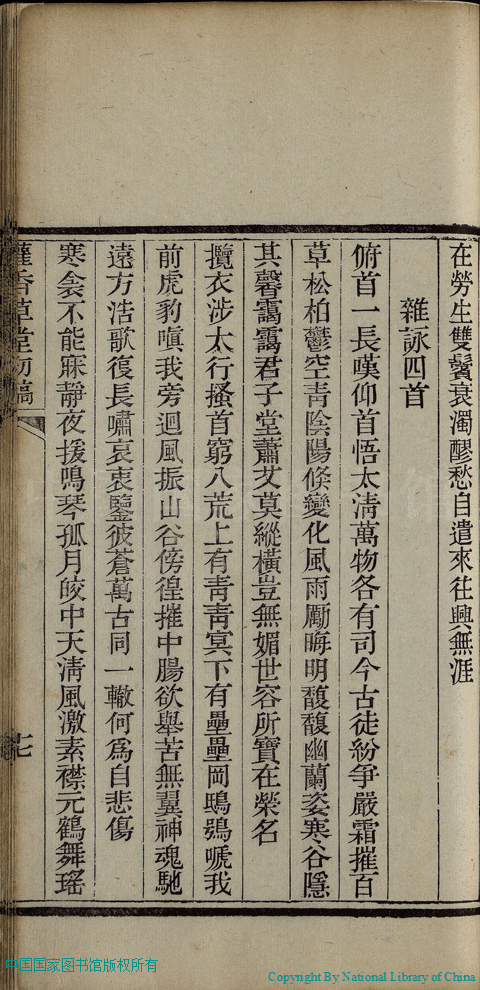 在勞生雙鬢衰濁醪愁自遣來往興無涯
雜詠四首
俯首一長嘆仰首悟太淸萬物各有司今古徒紛爭嚴霜摧百
草松柏鬱空靑陰陽倐變化風雨勵晦明馥馥幽蘭姿寒谷隱
其馨靄靄君子堂蕭艾莫縱橫豈無媚世容所寶在榮名
攬衣涉太行搔首窮八荒上有靑靑冥下有壘壘岡鴟鴞嗁我
前虎豹嗔我旁迴風振山谷傍徨摧中腸欲舉苦無翼神魂馳
遠方浩歌復長嘯哀衷鑒彼蒼萬古同一轍何爲自悲傷
寒衾不能寐靜夜援鳴琴孤月皎中天淸風激素襟元鶴舞瑤
香草堂初稿
七
中国国家图书馆版权所有
Copyright By National Library of China